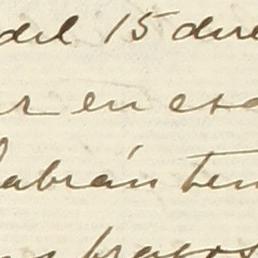 del 15 du
r en esa
habrán ten